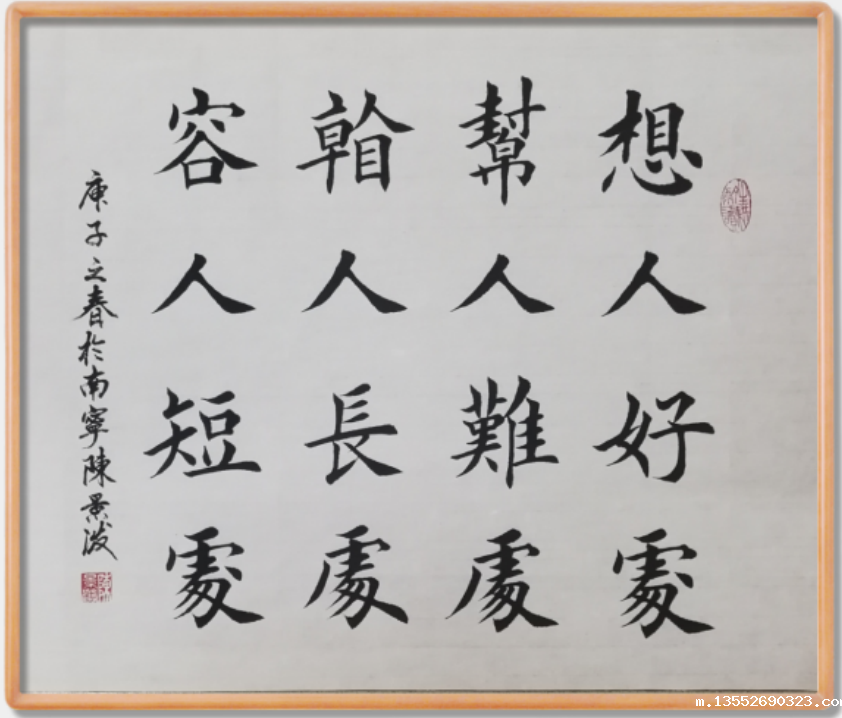 想人好處
幫人難處
看人長處
容人短處
庚子之春於南寧陳景
m.13552690323.com